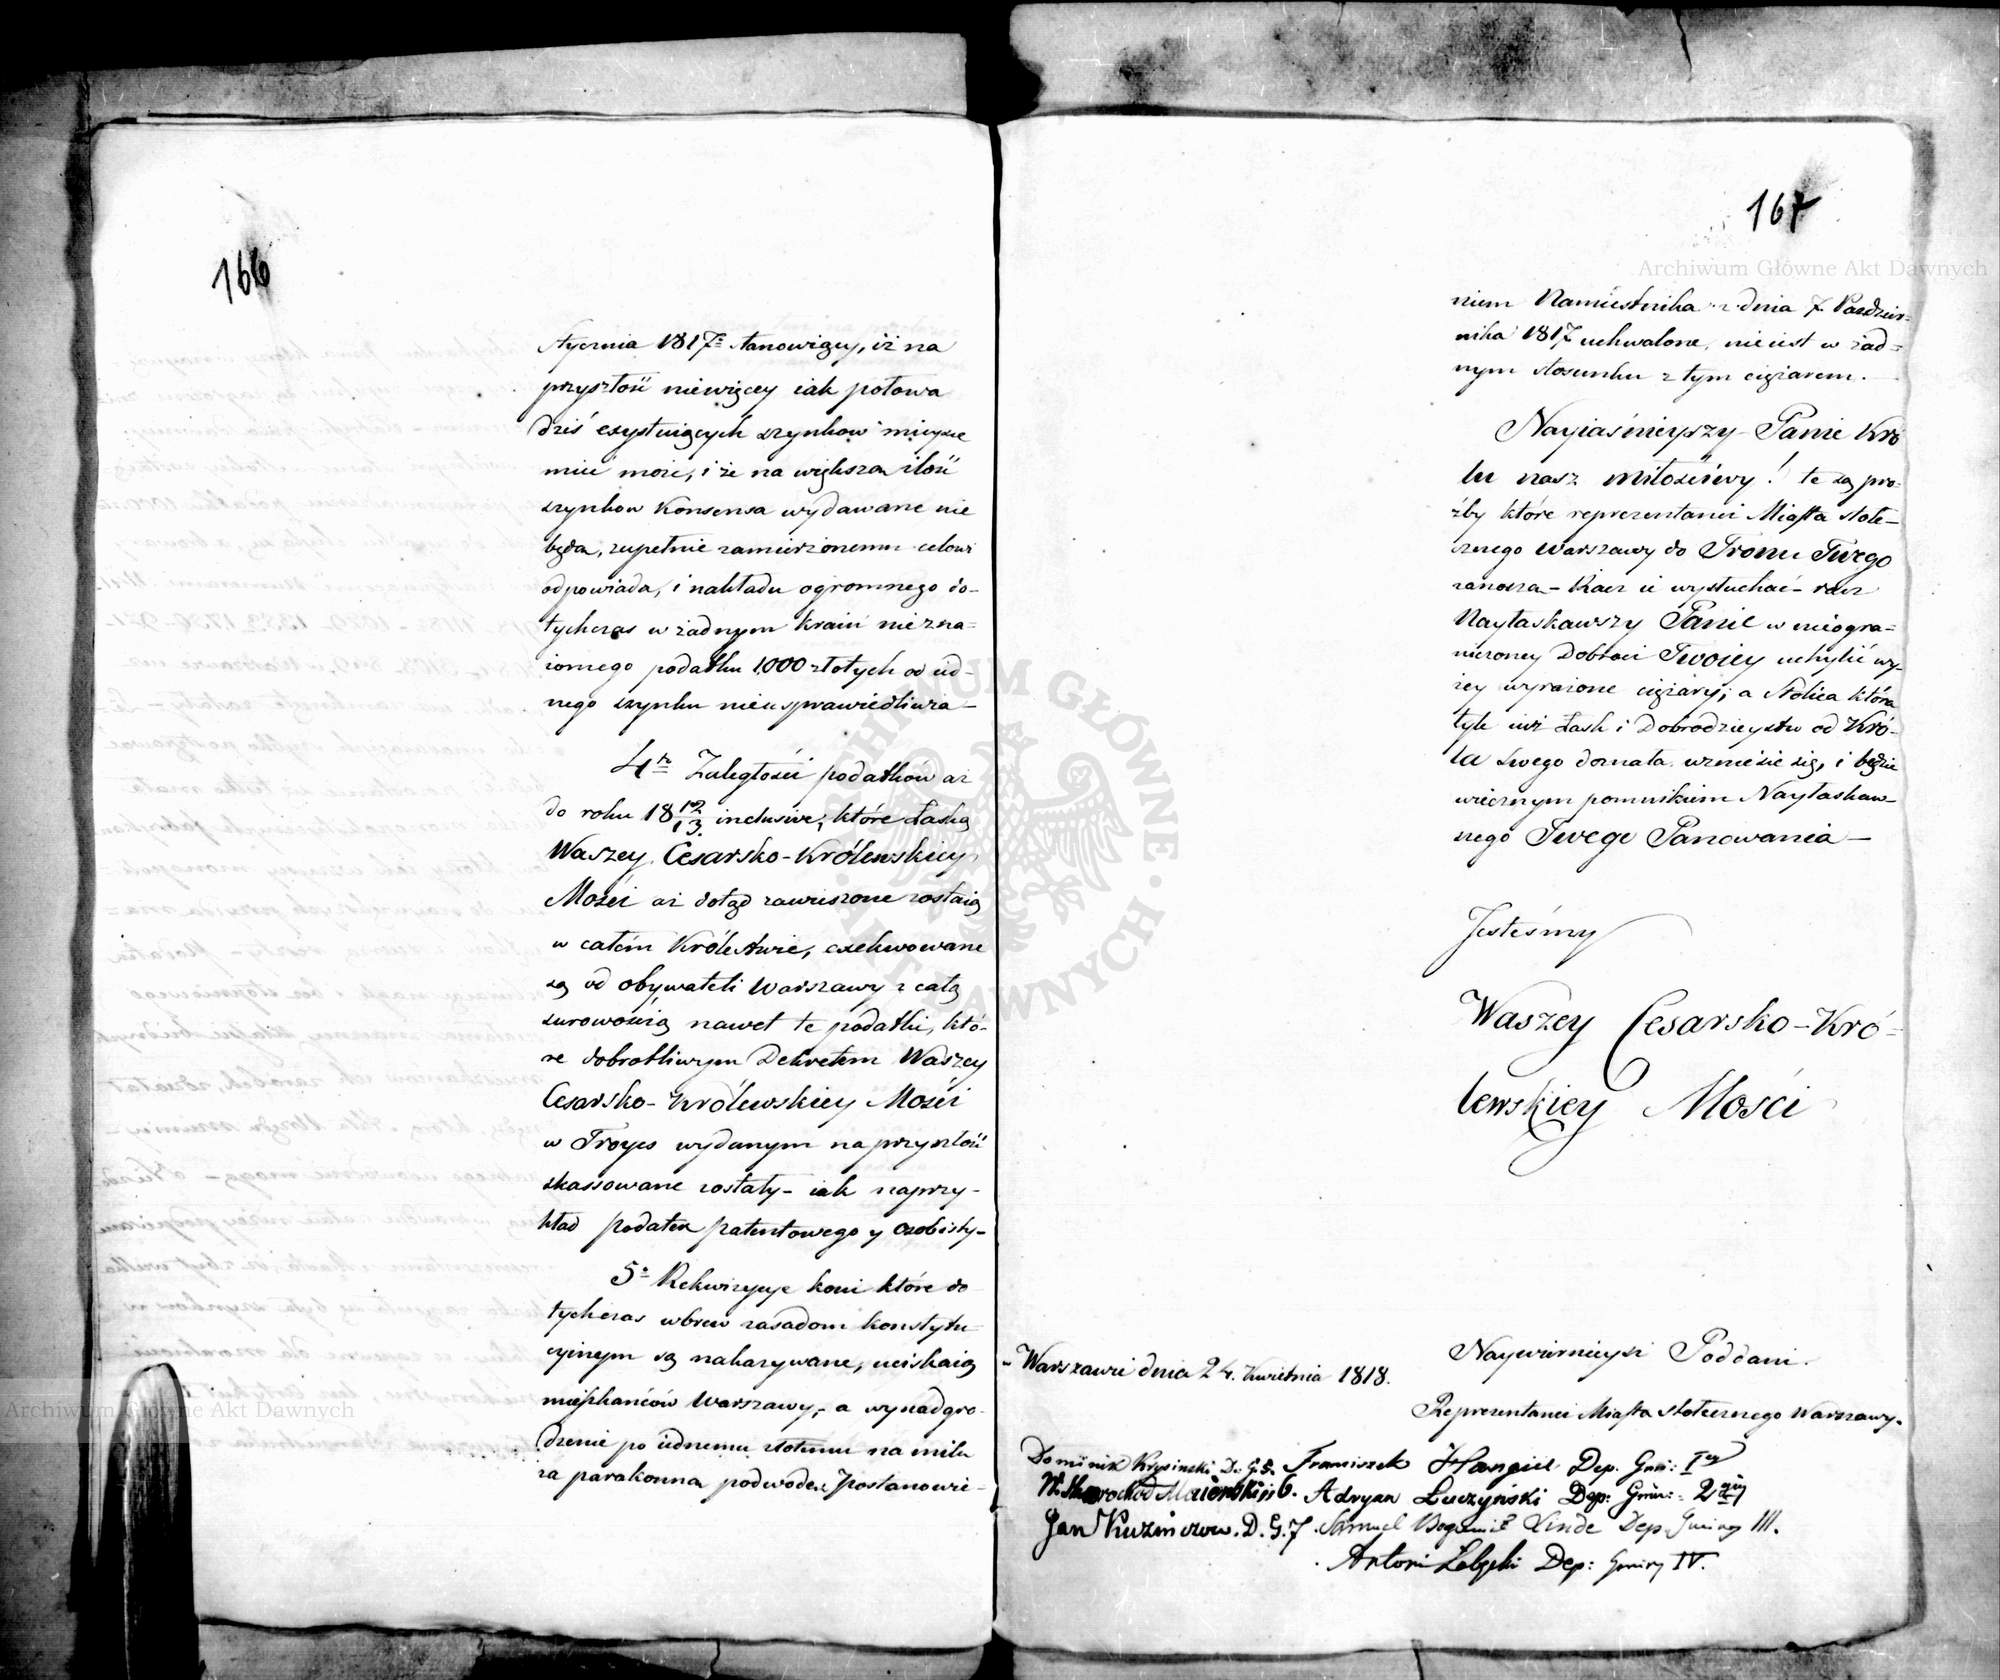 166
stycznia 1817 stanowiący, iż na
przyszłość niewięcey iak połowa
dziś exystuiących szynkow mieysce
mieć może, i że na większa ilość
szynkow Konsensa wydawane nie
będą, zupełnie zamierzonemu celowi
odpowiada, i nakładu ogromnego do-
tychczas w żadnym kraiu niezna-
iomego podatku 1,000 złotych od ied-
nego szynku nieusprawiedliwia –
4to Zaległości podatków aż
do roku 18 12/13 inclusive, które Łaską
Waszey Cesarsko-Królewskiey
Mości aż dotąd zawieszone zostaią
w całém Królestwie, exekwowane
są od obywateli Warszawy z całą
surowością nawet te podatki, któ-
re dobrotliwym Dekretem Waszey
Cesarsko-Królewskiey Mości
w Troyes wydanym na przyszłość
skassowane zostały – iak naprzy-
kład podatek patentowego y osobisty –
5o Rekwizycye koni które do
tychczas wbrew zasadom konstytu-
cyinym są nakazywane, uciskaią
mieszkańców Warszawy, a wynadgro-
dzenie po iednemu złotemu na milę
za parakonną podwodę, postanowie-
167
niem Namiestnika z dnia 7. Paździer-
nika 1817 uchwalone, nieiest w żad=
nym stosunku z tym ciężarem.
Nayiaśnieyszy Panie Kró
lu nasz miłościwy! te są pro-
źby które reprezentanci Miasta stołe-
cznego Warszawy do Tronu Twego
zanoszą – Racz ie wysłuchać – racz
Nayłaskawszy Panie w nieogra=
niczoney Dobroci Twoiey uchylić wy-
żey wyrażone ciężary, a Stolica która
tyle iuż Łask i Dobrodzieystw od Kró-
la swego doznała wzniesie się, i będzie
wiecznym pomnikiem Nayłaskaw-
szego Twego Panowania –
Jesteśmy
Waszey Cesarsko-Kró-
lewskiey Mości
Naywiernieysi Poddani.
Warszawie dnia 24. Kwietnia 1818.
Reprezentanci Miasta stołecznego Warszawy.
Dominik Krysinski D. G. 5. Franciszek Dep. Gmi: I
W. Skorochod Maiewski G. 6. Adryan Łuczyński Dep: Gmin: 2
Jan D. G. 7. Samuel Bogumił Linde Dep. Gminy III.
Antoni Dep: Gminy IV.
Archiwum Główne Akt Dawnych
Archiwum Główne Akt Dawnych
ARCHIWUM GŁÓWNE AKT DAWNYCH